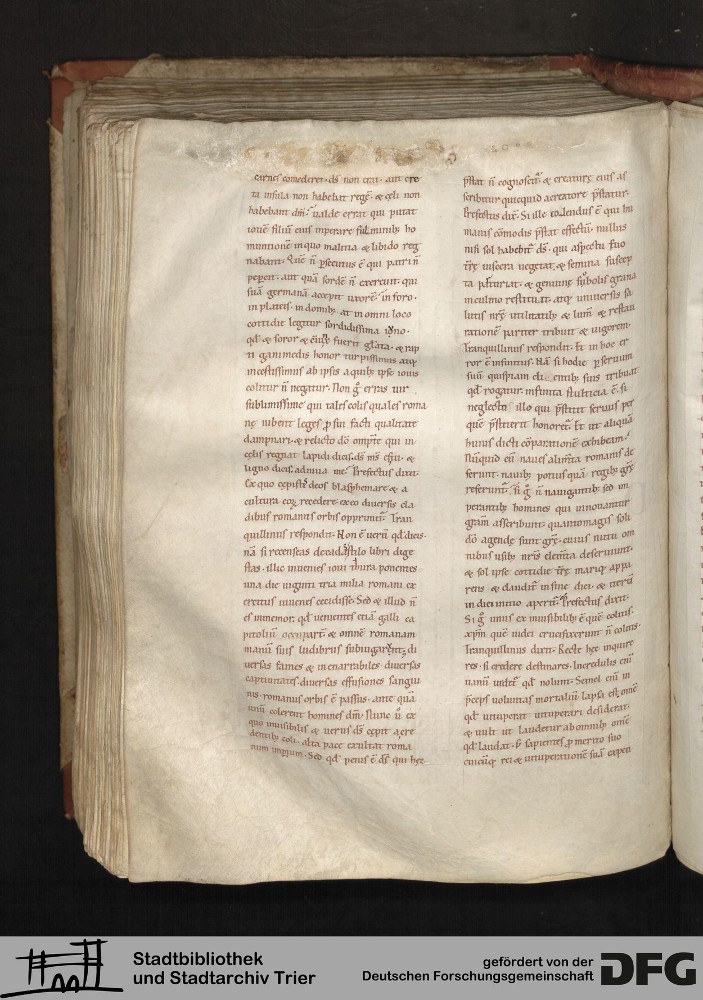 carnes comederet. ds̄ non erat. aut cre
ta insula non habebat regē. & celi non
habebant dm̄. Valde errat qui putat
iouē filiū eius imperare fulminib; ho
nabant. Quē n̄ persecutus ē qui patri n̄
pepercit. aut quā sordē n̄ exercuit. qui
suā germanā accepit uxorē. in foro.
in plateis. in domib; at in omni loco
cottidie legitur sordidissima
ni ganimedis honor turpissimus atq;
incestissimus ab ipsis aquilis ipse iouis
colitur n̄ negatur. Non g̊ erras uir
sublimissime qui tales colis quales roma
nę iubent leges p sui facti qualitate
dampnari. & relicto dō omp̄te qui in
cęlis regnat lapidi dicis. ds̄ ms̄ es tu. &
ligno dicis. adiuua me. Prefectus dixit.
Ex quo cepistis deos blasphemare & a
cultura eorum recedere. ex eo diuersis cla
dibus romanus orbis opprimit. Tran
quillinus respondit. Non ē uerū qd̄ dicis.
nā si recenseas libri dige
stas. illic inuenies ioui thura ponentes
una die uiginti tria milia romani ex
ercitus iuuenes cecidisse. Sed & illud n̄
es inmemor. qd̄ uenientes etiā galli ca
pitoliū & omnē romanam
manū suis ludibriis di
uersas fames & inenarrabiles. diuersas
captiuitates. diuersas effusiones sangui
nis romanus orbis ē passus. ante quā
unū colerent homines dm̄. Nunc u̇ ex
quo inuisibilis & uerus ds̄ cepit a cre
dentib; coli. alta pace exultat roma
num imperium. Sed qd̄ peius ē ds̄ qui hec
prestat n̄ cognoscit. & creaturę eius as
scribitur quicquid a creatore prestatur.
Prefectus dixit. Si ille colendus ē qui hu
manis cōmodis prestat effectū. nullus
nisi sol habebitur ds̄. qui aspectu suo
terrę uiscera uegetat. & semina suscep
ta parturiat. & genuine sobolis grana
in culmo restituat. atq; uniuersis sa
lutis nrę utilitatib; & lumen & restau
rationē pariter tribuit & uigorem.
Tranquillinus respondit. Et in hoc er
ror ē infinitus. Nā si hodie per seruum
suū quispiam clientib; suis tribuat
qd̄ rogatur. infinita stulticia ē. si
neglecto illo qui prestitit seruus per
quē prestiterit honoret. Et ut aliquā
huius dicti cōparationē exhibeam.
Nunquid cū naues alimta romanis de
ferunt. nauib; potius quā regib; gr̄s
referunt. Si g̊ n̄ nauigantib; sed im
perantib; homines qui innouantur
gratiam asscribunt. quanto magis soli
dō agendę sunt gr̄ę. cuius nutu om
nibus usib; nr̄is elemta deseruiunt.
& sol ipse cottidie terrę mariq; appa
rens & claudit in fine diei. & iterū
in diei initio aperit. Prefectus dixit.
Si g̊ unus ex inuisibilib; ē quē colitis.
xp̄m quē iudei crucifixerunt n̄ colitis.
Tranquillinus dixit. Recte hęc inquire
res. si credere destinares. Incredulis enī
uanū uidetur qd̄ nolunt. Semel enī in
preceps uoluntas mortaliū lapsa est. omē
qd̄ uituperat uituperari desiderat.
& uult ut laudetur ab omnib; omē
qd̄ laudat. s; sapientes p merito suo
cuicūq; rei & uituperationē suā expen
Stadtbibliothek
und Stadtarchiv Trier
gefördert von der
Deutschen Forschungsgemeinschaft
DFG